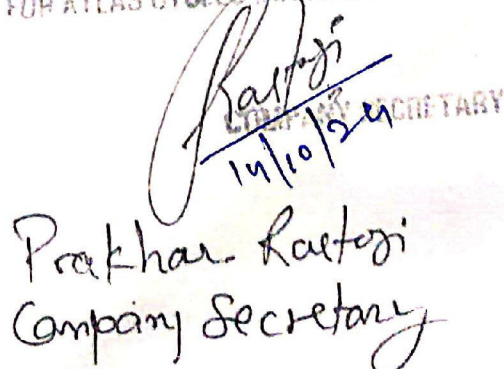 FOR ATLAS CYCLES
Rastogi
COMPANY SECRETARY
14/10/24
Prakhar Rastogi
Company Secretary